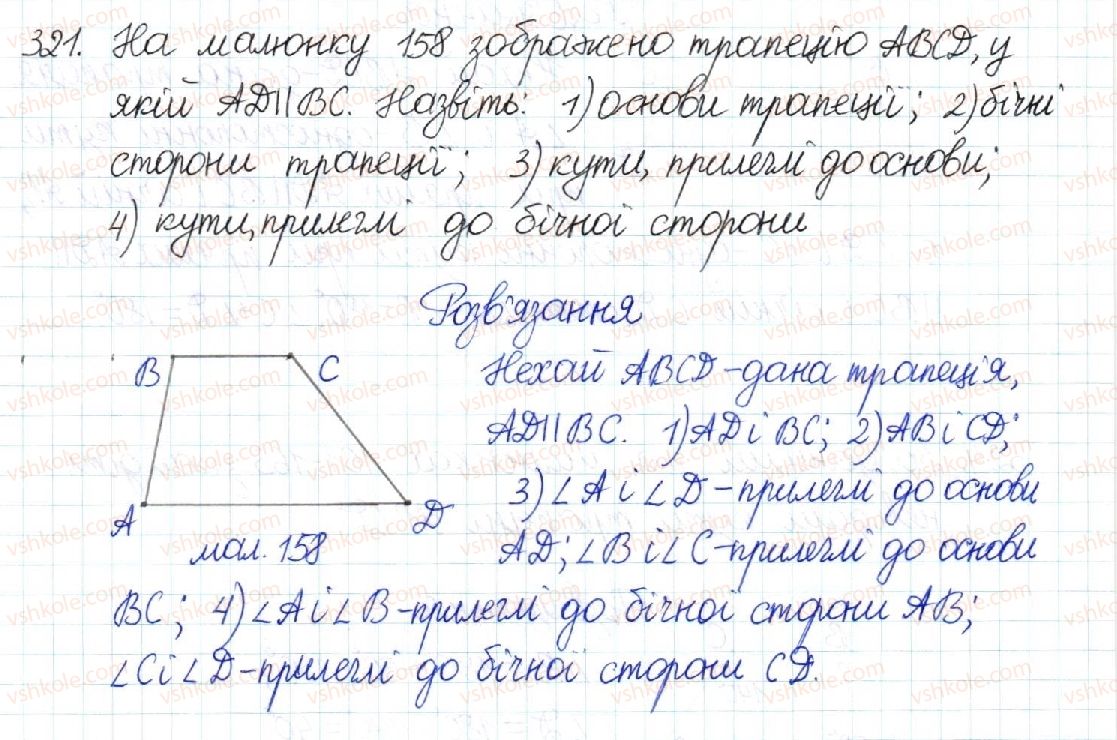 321. На малюнку 158 зображено трапецію ABCD, у
якій AD||BC. Назвіть: 1) основи трапеції; 2) бічні
сторони трапеції; 3) кути, прилеглі до основи;
4) кути, прилеглі до бічної сторони
Розв'язання
B C
Нехай ABCD - дана трапеція,
AD||BC. 1) AD і BC; 2) AB і CD;
3) ∠A і ∠D - прилеглі до основи
A D
мал. 158
AD; ∠B і ∠C - прилеглі до основи
BC; 4) ∠A і ∠B - прилеглі до бічної сторони AB;
∠C і ∠D - прилеглі до бічної сторони CD.
vshkole.com